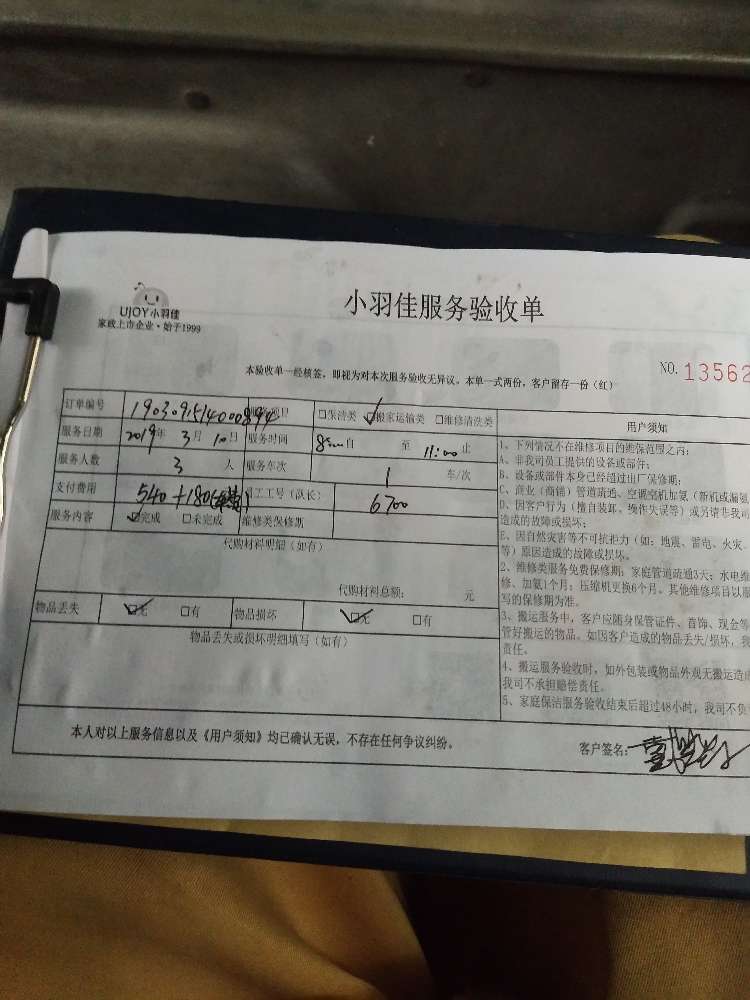 UJOY小羽佳
家政上市企业·始于1999
小羽佳服务验收单
本验收单一经核签，即视为对本次服务验收无异议。本单一式两份，客户留存一份（红）
NO. 13562
订单编号 190309151400089 项目 □保洁类 ☑搬家运输类 □维修清洗类
服务日期 2019年 3月 10日 服务时间 8:00自 至 11:00止
服务人数 3 人 服务车次 1 车/次
支付费用 540+180 员工工号（队长） 6700
服务内容 ☑完成 □未完成 维修类保修期
代购材料明细（如有）
代购材料总额： 元
物品丢失 ☑无 □有 物品损坏 ☑无 □有
物品丢失或损坏明细填写（如有）
用户须知
1、下列情况不在维修项目的维保范围之内：
A、非我司员工提供的设备或部件；
B、设备或部件本身已经超过出厂保修期；
C、商业（商铺）管道疏通、空调空机加氨（新机或漏氨
D、因客户行为（擅自装卸、操作失误等）或另请非我司
造成的故障或损坏；
E、因自然灾害等不可抗拒力（如：地震、雷电、火灾、
等）原因造成的故障或损坏。
2、维修类服务免费保修期：家庭管道疏通3天；水电维
修、加氨1个月；压缩机更换6个月。其他维修项目以服
写的保修期为准。
3、搬运服务中，客户应随身保管证件、首饰、现金等
管好搬运的物品。如因客户造成的物品丢失/损坏，我
责任。
4、搬运服务验收时，如外包装或物品外观无搬运造成
我司不承担赔偿责任。
5、家庭保洁服务验收结束后超过48小时，我司不负
本人对以上服务信息以及《用户须知》均已确认无误，不存在任何争议纠纷。
客户签名：